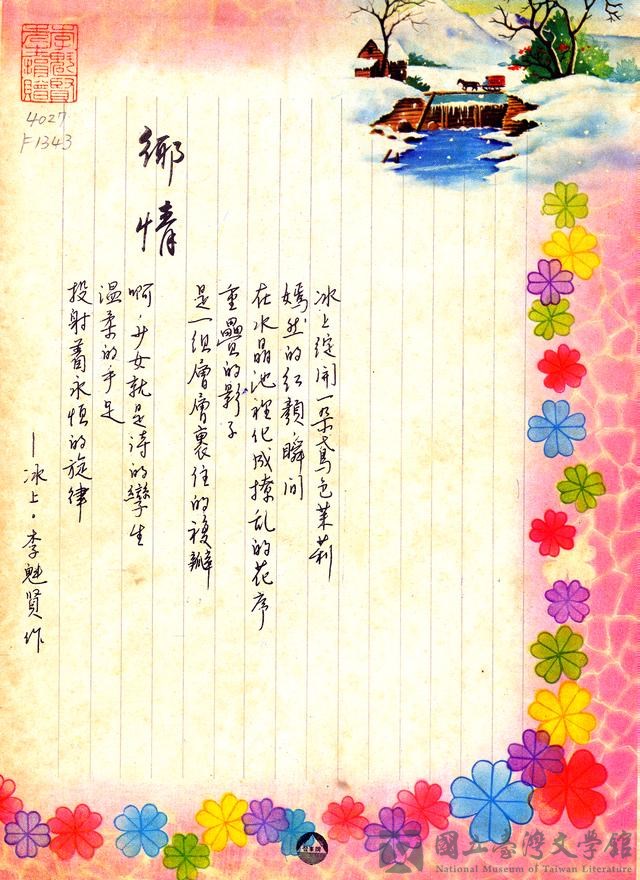 冰上綻開一朵鳶色茉莉
嫣然的紅顏瞬間
在水晶池裡化成撩乱的花序
重疊的影子
是一組層層裹住的複瓣
鄉情
啊,少女就是詩的孿生
溫柔的手足
投射着永恒的旋律
—冰上·李魁賢作
李魁賢
4027
F1343
國立臺灣文學館
National Museum of Taiwan Literature